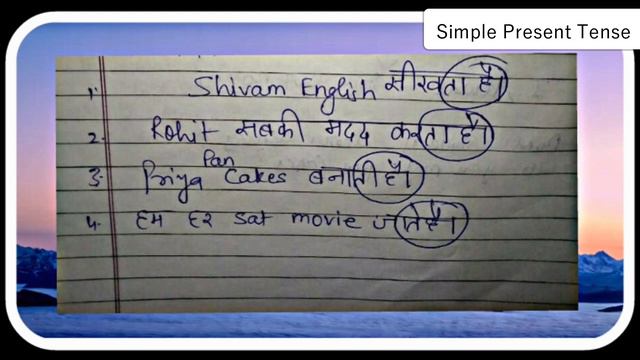 Simple Present Tense
1. Shivam English सीखता है।
2. Rohit सबकी मदद करता है।
3. Priya Pan Cakes बनाती है।
4. हम हर sat movie जाते है।